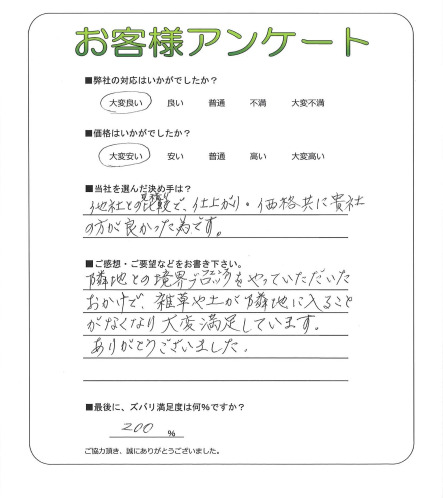 お客様アンケート
■弊社の対応はいかがでしたか？
大変良い 良い 普通 不満 大変不満
■価格はいかがでしたか？
大変安い 安い 普通 高い 大変高い
■当社を選んだ決め手は？
見積り
他社との比較で、仕上がり・価格共に貴社
の方が良かった為です。
■ご感想・ご要望などをお書き下さい。
隣地との境界ブロックをやっていただいた
おかげで、雑草や土が隣地に入ること
がなくなり大変満足しています。
ありがとうございました。
■最後に、ズバリ満足度は何％ですか？
200 ％
ご協力頂き、誠にありがとうございました。